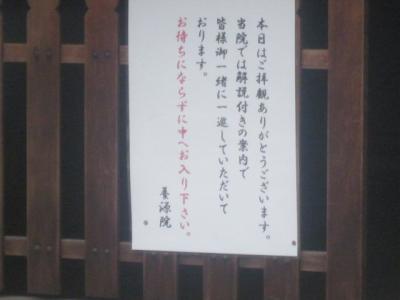 本日はご拝観ありがとうございます。
当院では解説付きの案内で
皆様御一緒に一巡していただいて
おります。
お待ちにならずに中へお入り下さい。
養源院